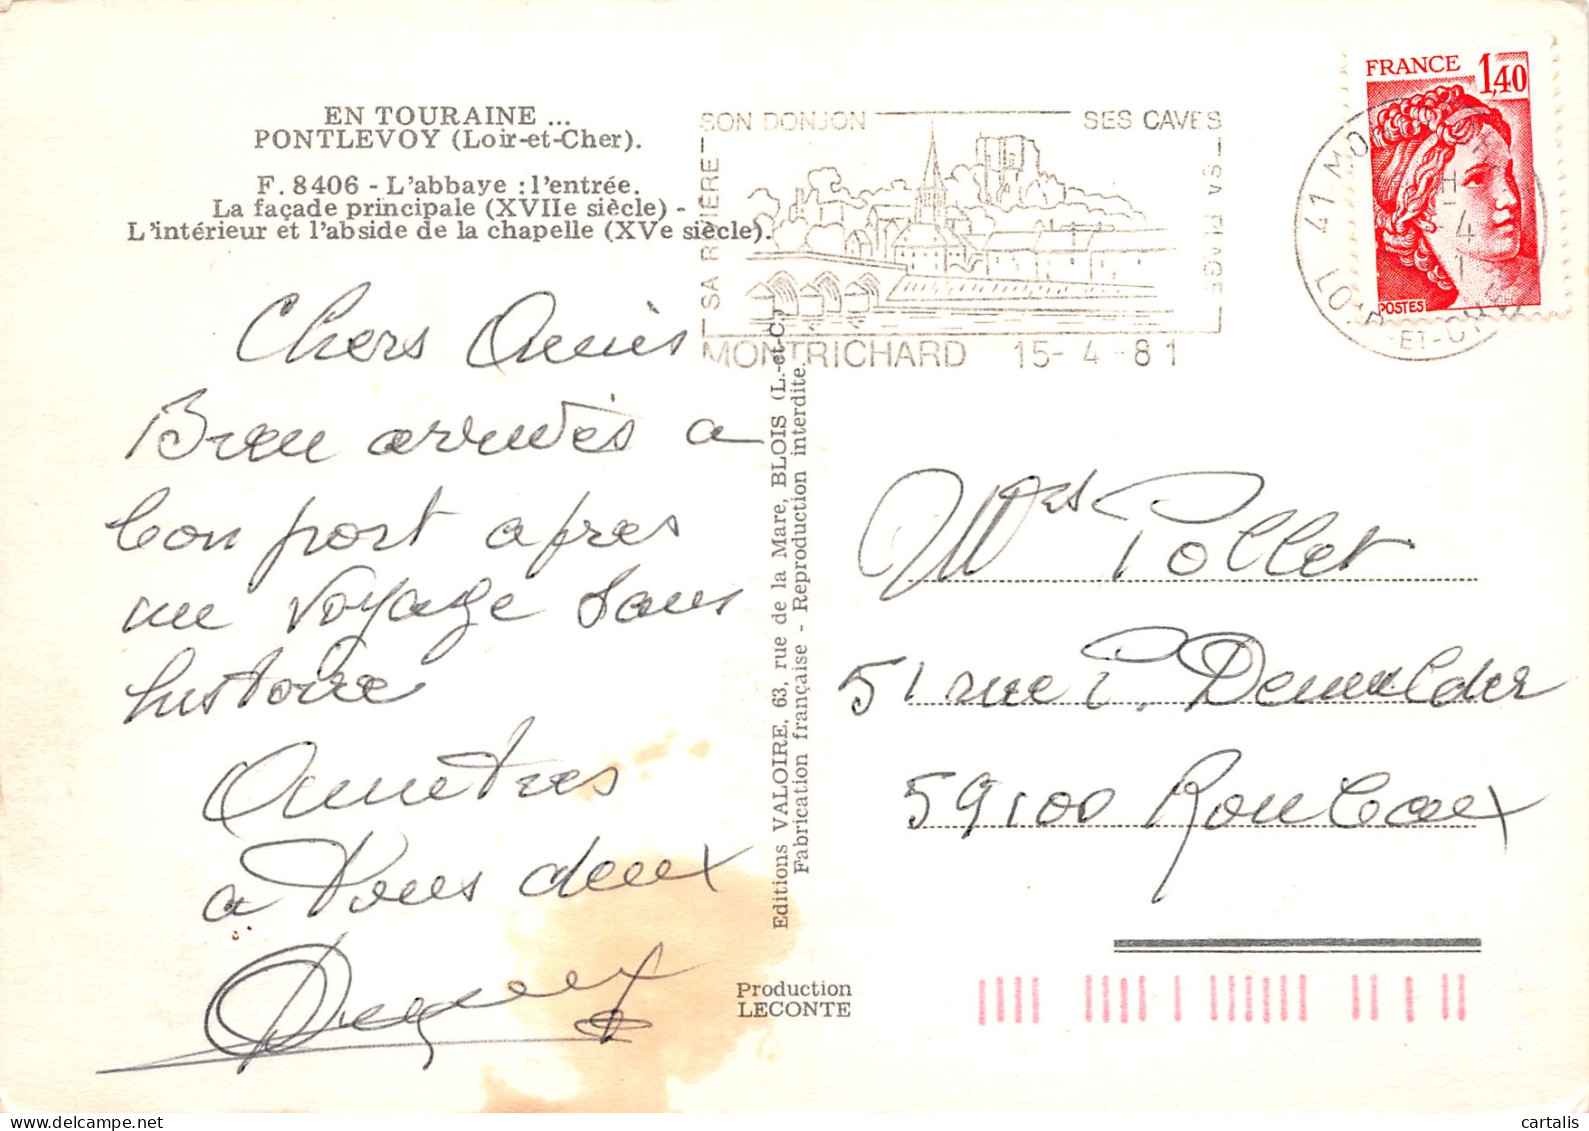 EN TOURAINE ...
PONTLEVOY (Loir-et-Cher).
F. 8406 - L'abbaye : l'entrée.
La façade principale (XVIIe siècle) -
L'intérieur et l'abside de la chapelle (XVe siècle).
Chers Amis
Bien arrivés a
bon port apres
un voyage sans
histoire
Amitres
a Vous deux
SON DONJON
SES CAVES
SA RIVIÈRE
SA PLAGE
MONTRICHARD 15-4-81
FRANCE 1,40
POSTES
41 MO
LOIR-ET-CHER
Editions VALOIRE, 63, rue de la Mare, BLOIS (L.-et-C.)
Fabrication française - Reproduction interdite.
Production
LECONTE
Mes Pollet
51 rue P.
59100 Roubaix
cartalis